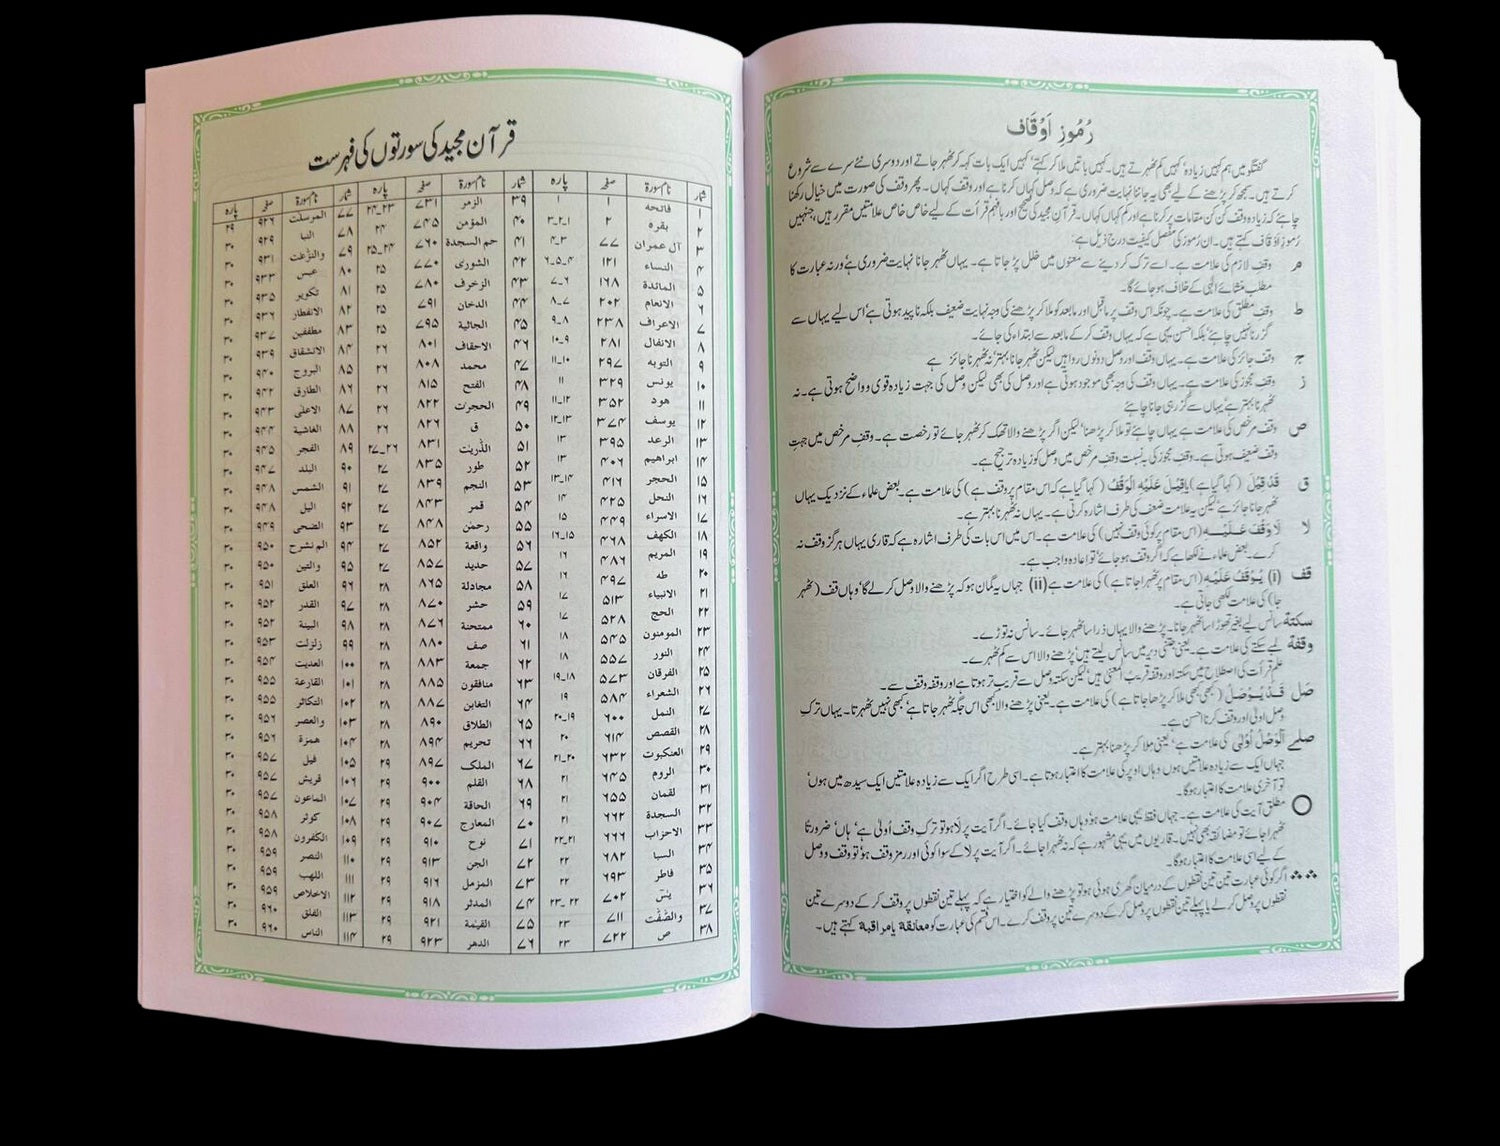 رُمُوزِ اَوْقَاف
گفتگو میں ہم کہیں زیادہ‘ کہیں کم ٹھہرتے ہیں۔ کہیں باتیں ملا کر کہتے‘ کہیں ایک بات کہہ کر ٹھہر جاتے اور دوسری نئے سرے سے شروع
کرتے ہیں۔ سمجھ کر پڑھنے کے لیے بھی یہ جاننا نہایت ضروری ہے کہ وصل کہاں کرنا ہے اور وقف کہاں۔ پھر وقف کی صورت میں خیال رکھنا
چاہئے کہ زیادہ وقف کن کن مقامات پر کرنا ہے اور کم کہاں کہاں۔ قرآنِ مجید کی صحیح اور بافہم قرأت کے لیے خاص خاص علامتیں مقرر ہیں، جنہیں
رُموزِ اَوْقاف کہتے ہیں۔ ان رُموز کی مفصل کیفیت درج ذیل ہے:
مـ وقفِ لازم کی علامت ہے۔ اسے ترک کر دینے سے معنوں میں خلل پڑ جاتا ہے۔ یہاں ٹھہر جانا نہایت ضروری ہے‘ ورنہ عبارت کا
مطلب منشائے الٰہی کے خلاف ہو جائے گا۔
ط وقفِ مطلق کی علامت ہے۔ چونکہ اس وقف پر ماقبل اور مابعد کو ملا کر پڑھنے کی وجہ نہایت ضعیف بلکہ ناپید ہوتی ہے‘ اس لیے یہاں سے
گزرنا نہیں چاہئے‘ بلکہ احسن یہی ہے کہ یہاں وقف کر کے مابعد سے ابتداء کی جائے۔
ج وقفِ جائز کی علامت ہے۔ یہاں وقف اور وصل دونوں روا ہیں لیکن ٹھہر جانا بہتر‘ نہ ٹھہرنا جائز ہے
ز وقفِ مجوز کی علامت ہے۔ یہاں وقف کی وجہ بھی موجود ہوتی ہے اور وصل کی بھی لیکن وصل کی جہت زیادہ قوی و واضح ہوتی ہے۔ نہ
ٹھہرنا بہتر ہے‘ یہاں سے گزر ہی جانا چاہئے
ص وقفِ مرخص کی علامت ہے یہاں چاہئے تو ملا کر پڑھنا‘ لیکن اگر پڑھنے والا تھک کر ٹھہر جائے تو رخصت ہے۔ وقفِ مرخص میں جہتِ
وقف ضعیف ہوتی ہے۔ وقفِ مجوز کی بہ نسبت وقفِ مرخص میں وصل کو زیادہ ترجیح ہے۔
ق قَدْ قِيْلَ (کہا گیا ہے) یا قِيْلَ عَلَيْهِ الْوَقْفُ (کہا گیا ہے کہ اس مقام پر وقف ہے) کی علامت ہے۔ بعض علماء کے نزدیک یہاں
ٹھہر جانا جائز ہے‘ لیکن یہ علامت ضعف کی طرف اشارہ کرتی ہے۔ یہاں نہ ٹھہرنا بہتر ہے۔
لا لَا وَقْفَ عَلَيْهِ (اس مقام پر کوئی وقف نہیں) کی علامت ہے۔ اس میں اس بات کی طرف اشارہ ہے کہ قاری یہاں ہرگز وقف نہ
کرے۔ بعض علماء نے لکھا ہے کہ اگر وقف ہو جائے تو اعادہ واجب ہے۔
قف (i) يُوْقَفُ عَلَيْهِ (اس مقام پر ٹھہرا جاتا ہے) کی علامت ہے (ii) جہاں یہ گمان ہو کہ پڑھنے والا وصل کرلے گا‘ وہاں قف (ٹھہر
جا) کی علامت لکھی جاتی ہے۔
سکتة سانس لیے بغیر تھوڑا سا ٹھہر جانا۔ پڑھنے والا یہاں ذرا سا ٹھہر جائے۔ سانس نہ توڑے۔
وقفة لمبے سکتے کی علامت ہے۔ یعنی جتنی دیر میں سانس لیتے ہیں‘ پڑھنے والا اس سے کم ٹھہرے۔
علمِ قرأت کی اصطلاح میں سکتہ اور وقفہ قریب المعنیٰ ہیں‘ لیکن سکتہ وصل سے قریب تر ہوتا ہے اور وقفہ وقف سے۔
صَل قَدْ يُوْصَلُ (کبھی کبھی ملا کر پڑھا جاتا ہے) کی علامت ہے۔ یعنی پڑھنے والا کبھی اس جگہ ٹھہر جاتا ہے‘ کبھی نہیں ٹھہرتا۔ یہاں ترکِ
وصل اولیٰ اور وقف کرنا احسن ہے۔
صلے اَلْوَصْلُ اَوْلٰی کی علامت ہے‘ یعنی ملا کر پڑھنا بہتر ہے۔
جہاں ایک سے زیادہ علامتیں ہوں وہاں اوپر کی علامت کا اعتبار ہوتا ہے۔ اسی طرح اگر ایک سے زیادہ علامتیں ایک سیدھ میں ہوں‘
تو آخری علامت کا اعتبار ہوگا۔
○ مطلق آیت کی علامت ہے۔ جہاں فقط یہی علامت ہو‘ وہاں وقف کیا جائے۔ اگر آیت پر لا ہو تو ترکِ وقف اُولیٰ ہے‘ ہاں‘ ضرورتاً
ٹھہرا جائے تو مضائقہ بھی نہیں۔ قاریوں میں یہی مشہور ہے کہ نہ ٹھہرا جائے۔ اگر آیت پر لا کے سوا کوئی اور رمزِ وقف ہو‘ تو وقف و وصل
کے لیے اسی علامت کا اعتبار ہوگا۔
∴ ∴ اگر کوئی عبارت تین تین نقطوں کے درمیان گھری ہوئی ہو تو پڑھنے والے کو اختیار ہے کہ پہلے تین نقطوں پر وقف کر کے دوسرے تین
نقطوں پر وصل کرلے یا پہلے تین نقطوں پر وصل کر کے دوسرے تین پر وقف کرے۔ اس قسم کی عبارت کو معانقة یا مراقبة کہتے ہیں۔
قرآن مجید کی سورتوں کی فہرست
شمار نام سورۃ صفحہ پارہ شمار نام سورۃ صفحہ پارہ شمار نام سورۃ صفحہ پارہ
۱ فاتحہ ۱ ۱ ۳۹ الزمر ۷۳۱ ۲۳۔۲۴ ۷۷ المرسلت ۹۲۶ ۲۹
۲ بقرہ ۲ ۱۔۲۔۳ ۴۰ المؤمن ۷۴۵ ۲۴ ۷۸ النبا ۹۲۹ ۳۰
۳ آل عمران ۷۷ ۳۔۴ ۴۱ حم السجدۃ ۷۶۰ ۲۴۔۲۵ ۷۹ والنّٰزعٰت ۹۳۱ ۳۰
۴ النساء ۱۲۱ ۴۔۵۔۶ ۴۲ الشوری ۷۷۰ ۲۵ ۸۰ عبس ۹۳۳ ۳۰
۵ المائدۃ ۱۶۸ ۶۔۷ ۴۳ الزخرف ۷۸۰ ۲۵ ۸۱ تکویر ۹۳۵ ۳۰
۶ الانعام ۲۰۲ ۷۔۸ ۴۴ الدخان ۷۹۱ ۲۵ ۸۲ الانفطار ۹۳۶ ۳۰
۷ الاعراف ۲۳۸ ۸۔۹ ۴۵ الجاثیة ۷۹۵ ۲۵ ۸۳ مطففین ۹۳۷ ۳۰
۸ الانفال ۲۸۱ ۹۔۱۰ ۴۶ الاحقاف ۸۰۱ ۲۶ ۸۴ الانشقاق ۹۳۹ ۳۰
۹ التوبه ۲۹۷ ۱۰۔۱۱ ۴۷ محمد ۸۰۸ ۲۶ ۸۵ البروج ۹۴۰ ۳۰
۱۰ یونس ۳۲۹ ۱۱ ۴۸ الفتح ۸۱۵ ۲۶ ۸۶ الطارق ۹۴۲ ۳۰
۱۱ ھود ۳۵۲ ۱۱۔۱۲ ۴۹ الحجرٰت ۸۲۲ ۲۶ ۸۷ الاعلٰی ۹۴۳ ۳۰
۱۲ یوسف ۳۷۴ ۱۲۔۱۳ ۵۰ ق ۸۲۶ ۲۶ ۸۸ الغاشیة ۹۴۴ ۳۰
۱۳ الرعد ۳۹۵ ۱۳ ۵۱ الذّٰریٰت ۸۳۱ ۲۶۔۲۷ ۸۹ الفجر ۹۴۵ ۳۰
۱۴ ابراھیم ۴۰۶ ۱۳ ۵۲ طور ۸۳۵ ۲۷ ۹۰ البلد ۹۴۷ ۳۰
۱۵ الحجر ۴۱۶ ۱۳۔۱۴ ۵۳ النجم ۸۳۹ ۲۷ ۹۱ الشمس ۹۴۸ ۳۰
۱۶ النحل ۴۲۵ ۱۴ ۵۴ قمر ۸۴۳ ۲۷ ۹۲ الیل ۹۴۸ ۳۰
۱۷ الاسراء ۴۴۹ ۱۵ ۵۵ رحمٰن ۸۴۸ ۲۷ ۹۳ الضحی ۹۴۹ ۳۰
۱۸ الکھف ۴۶۸ ۱۵۔۱۶ ۵۶ واقعة ۸۵۲ ۲۷ ۹۴ الم نشرح ۹۵۰ ۳۰
۱۹ المریم ۴۸۶ ۱۶ ۵۷ حدید ۸۵۷ ۲۷ ۹۵ والتین ۹۵۰ ۳۰
۲۰ طه ۴۹۷ ۱۶ ۵۸ مجادلة ۸۶۵ ۲۸ ۹۶ العلق ۹۵۱ ۳۰
۲۱ الانبیاء ۵۱۳ ۱۷ ۵۹ حشر ۸۷۰ ۲۸ ۹۷ القدر ۹۵۲ ۳۰
۲۲ الحج ۵۲۸ ۱۷ ۶۰ ممتحنة ۸۷۶ ۲۸ ۹۸ البینة ۹۵۲ ۳۰
۲۳ المومنون ۵۴۵ ۱۸ ۶۱ صف ۸۸۰ ۲۸ ۹۹ زلزلت ۹۵۳ ۳۰
۲۴ النور ۵۵۷ ۱۸ ۶۲ جمعة ۸۸۳ ۲۸ ۱۰۰ العدیت ۹۵۴ ۳۰
۲۵ الفرقان ۵۷۳ ۱۸۔۱۹ ۶۳ منافقون ۸۸۵ ۲۸ ۱۰۱ القارعة ۹۵۵ ۳۰
۲۶ الشعراء ۵۸۴ ۱۹ ۶۴ التغابن ۸۸۷ ۲۸ ۱۰۲ التکاثر ۹۵۵ ۳۰
۲۷ النمل ۶۰۰ ۱۹۔۲۰ ۶۵ الطلاق ۸۹۰ ۲۸ ۱۰۳ والعصر ۹۵۶ ۳۰
۲۸ القصص ۶۱۴ ۲۰ ۶۶ تحریم ۸۹۴ ۲۸ ۱۰۴ ھمزۃ ۹۵۶ ۳۰
۲۹ العنکبوت ۶۳۲ ۲۰۔۲۱ ۶۷ الملک ۸۹۷ ۲۹ ۱۰۵ فیل ۹۵۷ ۳۰
۳۰ الروم ۶۴۵ ۲۱ ۶۸ القلم ۹۰۰ ۲۹ ۱۰۶ قریش ۹۵۷ ۳۰
۳۱ لقمان ۶۵۵ ۲۱ ۶۹ الحاقة ۹۰۴ ۲۹ ۱۰۷ الماعون ۹۵۷ ۳۰
۳۲ السجدۃ ۶۶۲ ۲۱ ۷۰ المعارج ۹۰۷ ۲۹ ۱۰۸ کوثر ۹۵۸ ۳۰
۳۳ الاحزاب ۶۶۶ ۲۱۔۲۲ ۷۱ نوح ۹۱۰ ۲۹ ۱۰۹ الکفرون ۹۵۸ ۳۰
۳۴ السبا ۶۸۲ ۲۲ ۷۲ الجن ۹۱۳ ۲۹ ۱۱۰ النصر ۹۵۹ ۳۰
۳۵ فاطر ۶۹۳ ۲۲ ۷۳ المزمل ۹۱۶ ۲۹ ۱۱۱ اللھب ۹۵۹ ۳۰
۳۶ یٰسٓ ۷۰۲ ۲۲۔۲۳ ۷۴ المدثر ۹۱۸ ۲۹ ۱۱۲ الاخلاص ۹۵۹ ۳۰
۳۷ والصّٰفّٰت ۷۱۱ ۲۳ ۷۵ القیٰمة ۹۲۱ ۲۹ ۱۱۳ الفلق ۹۶۰ ۳۰
۳۸ ص ۷۲۲ ۲۳ ۷۶ الدھر ۹۲۳ ۲۹ ۱۱۴ الناس ۹۶۰ ۳۰